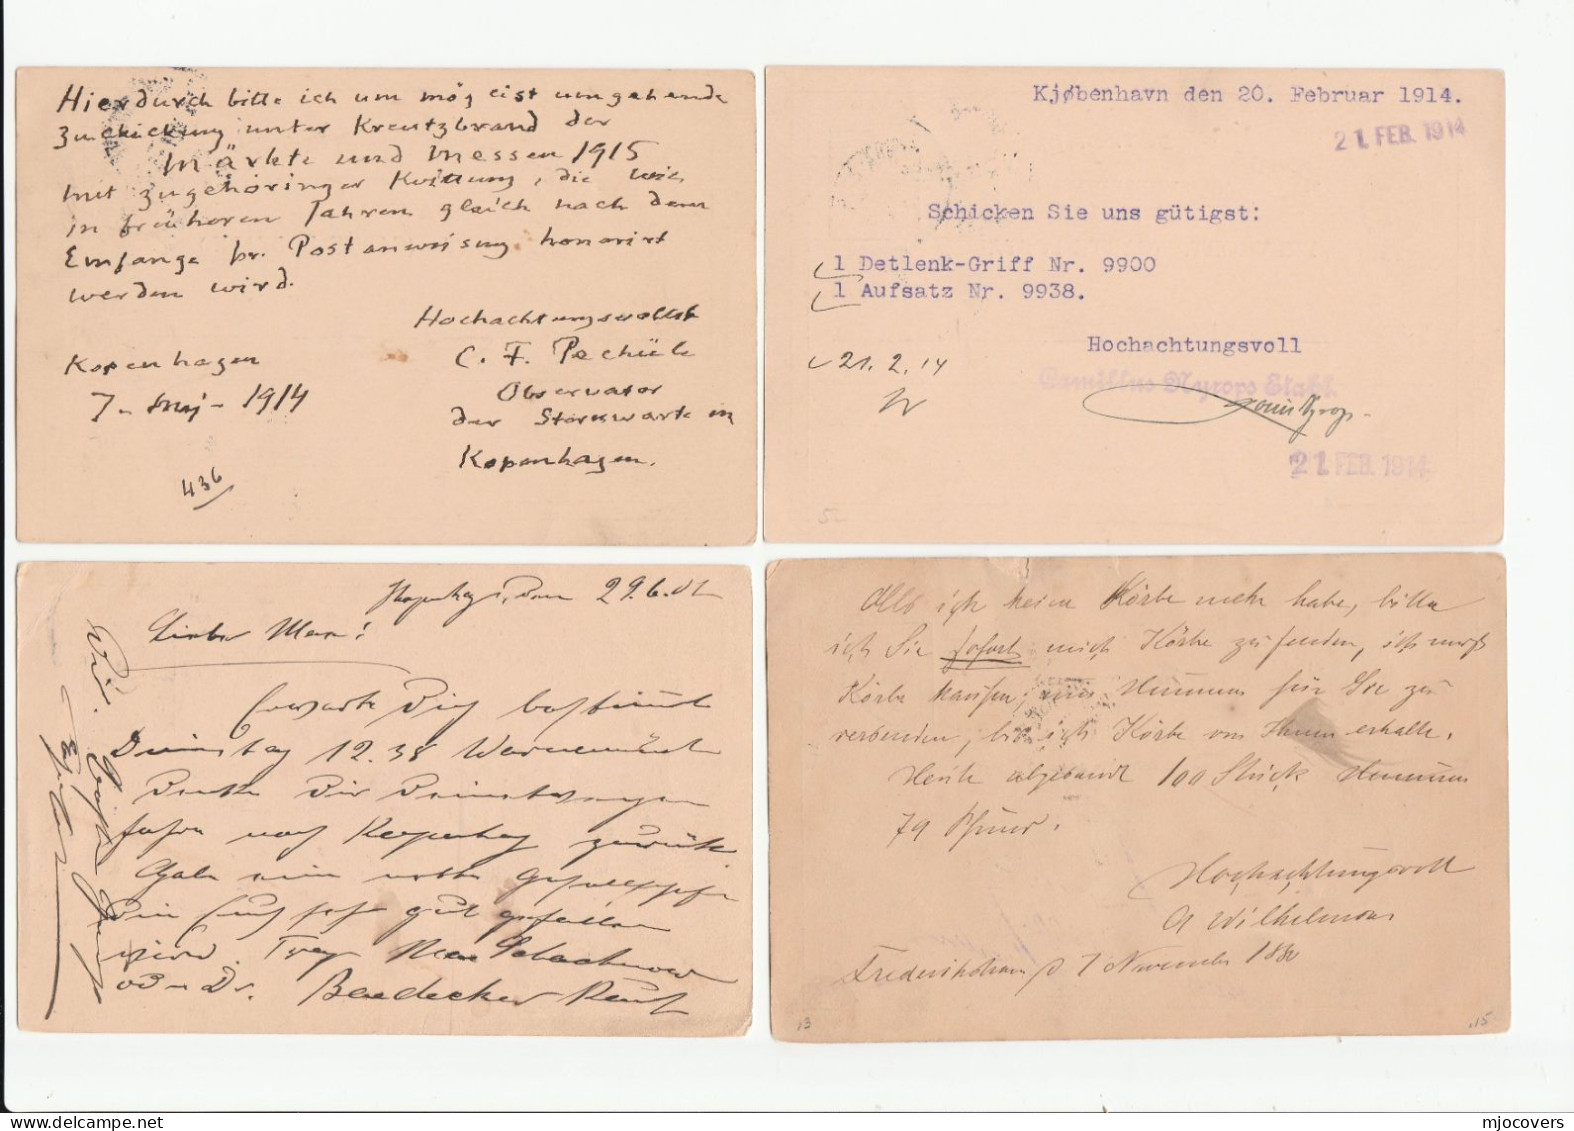 Hierdurch bitte ich um mög eist umgehende
Zuschickung unter Kreutzbrand der
Märkte und Messen 1915
mit zugehöringer Kvittung, die wie
in früheren Jahren gleich nach dem
Emfange pr. Postanweisung honorirt
werden wird.
Hochachtungsvollst
C. F. Pechüle
Observator
der Sternwarte in
Kopenhagen.
Kopenhagen
7- Maj - 1914
436
Kjøbenhavn den 20. Februar 1914.
21. FEB. 1914
Schicken Sie uns gütigst:
1 Detlenk-Griff Nr. 9900
1 Aufsatz Nr. 9938.
Hochachtungsvoll
21. 2. 14
Camillus Nyrops Etabl.
Louis Nyrop
21. FEB. 1914
29.6.01
Lieber Max!
Erwarte Dich bestimmt
Dienstag 12.38 Warnemünde
fahre nach Kopenhag zurück.
sehr gut gefallen
wird.
Dr.
Baedecker
Als ich keine Körbe mehr habe, bitte
ich Sie sofort mich Körbe zu senden, ich muss
Körbe kaufen, um Hummer für Sie zu
versenden, bis ich Körbe von Ihnen erhalte.
Heute abgesandt 100 Stück Hummer
79 Pfund.
Hochachtungsvoll
Wilhelmsen
Frederikshavn d 7 November 188
13
15
mjocovers